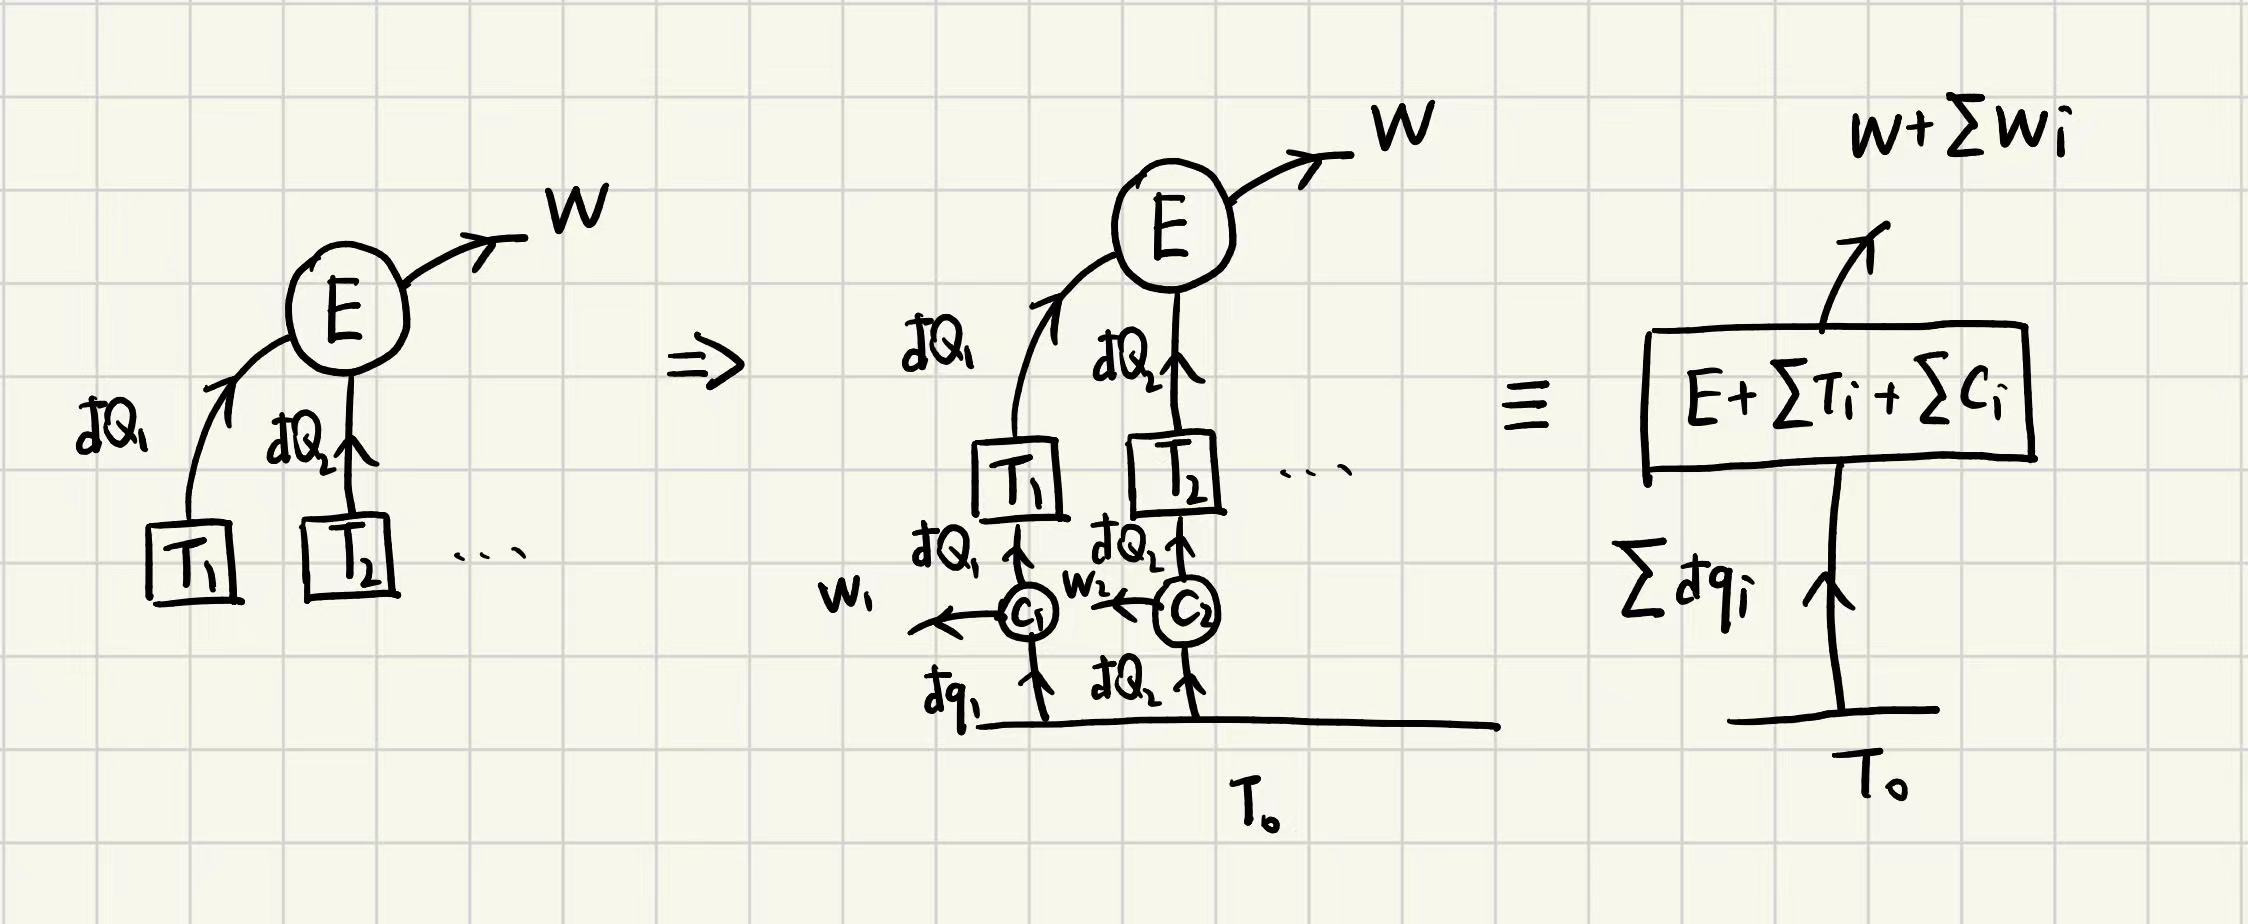 W
E
đQ₁
đQ₂
T₁
T₂
...
⇒
W
E
đQ₁
đQ₂
T₁
T₂
...
đQ₁
đQ₂
W₁
C₁
W₂
C₂
đq₁
đQ₂
T₀
≡
W+∑Wi
E+∑Ti+∑Ci
∑đqi
T₀